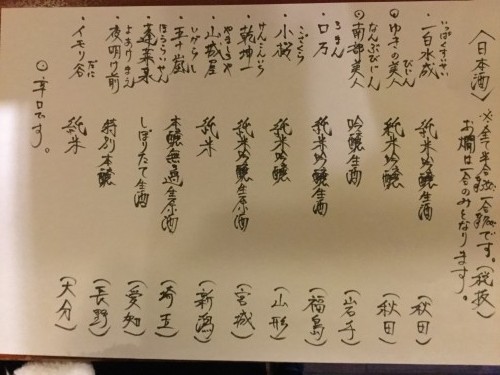 〈日本酒〉 ※全て半合 一合 です。(税抜)
お燗は一合のみとなります。
・一白水成 いっぱくすいせい 純米吟醸 (秋田)
⊙ゆきの美人 びじん 純米吟醸 (秋田)
⊙南部美人 なんぶびじん 吟醸生酒 (岩手)
・口万 ろまん 純米吟醸生酒 (福島)
・小桜 こざくら 純米吟醸 (山形)
・乾坤一 けんこんいち 純米吟醸生原酒 (宮城)
・山城屋 やましろや 純米 (新潟)
・五十嵐 いがらし 本醸無過生原酒 (埼玉)
・蓬莱泉 ほうらいせん しぼりたて生酒 (愛知)
・夜明け前 よあけまえ 特別本醸 (長野)
・イモリ谷 だに 純米 (大分)
⊙辛口です。